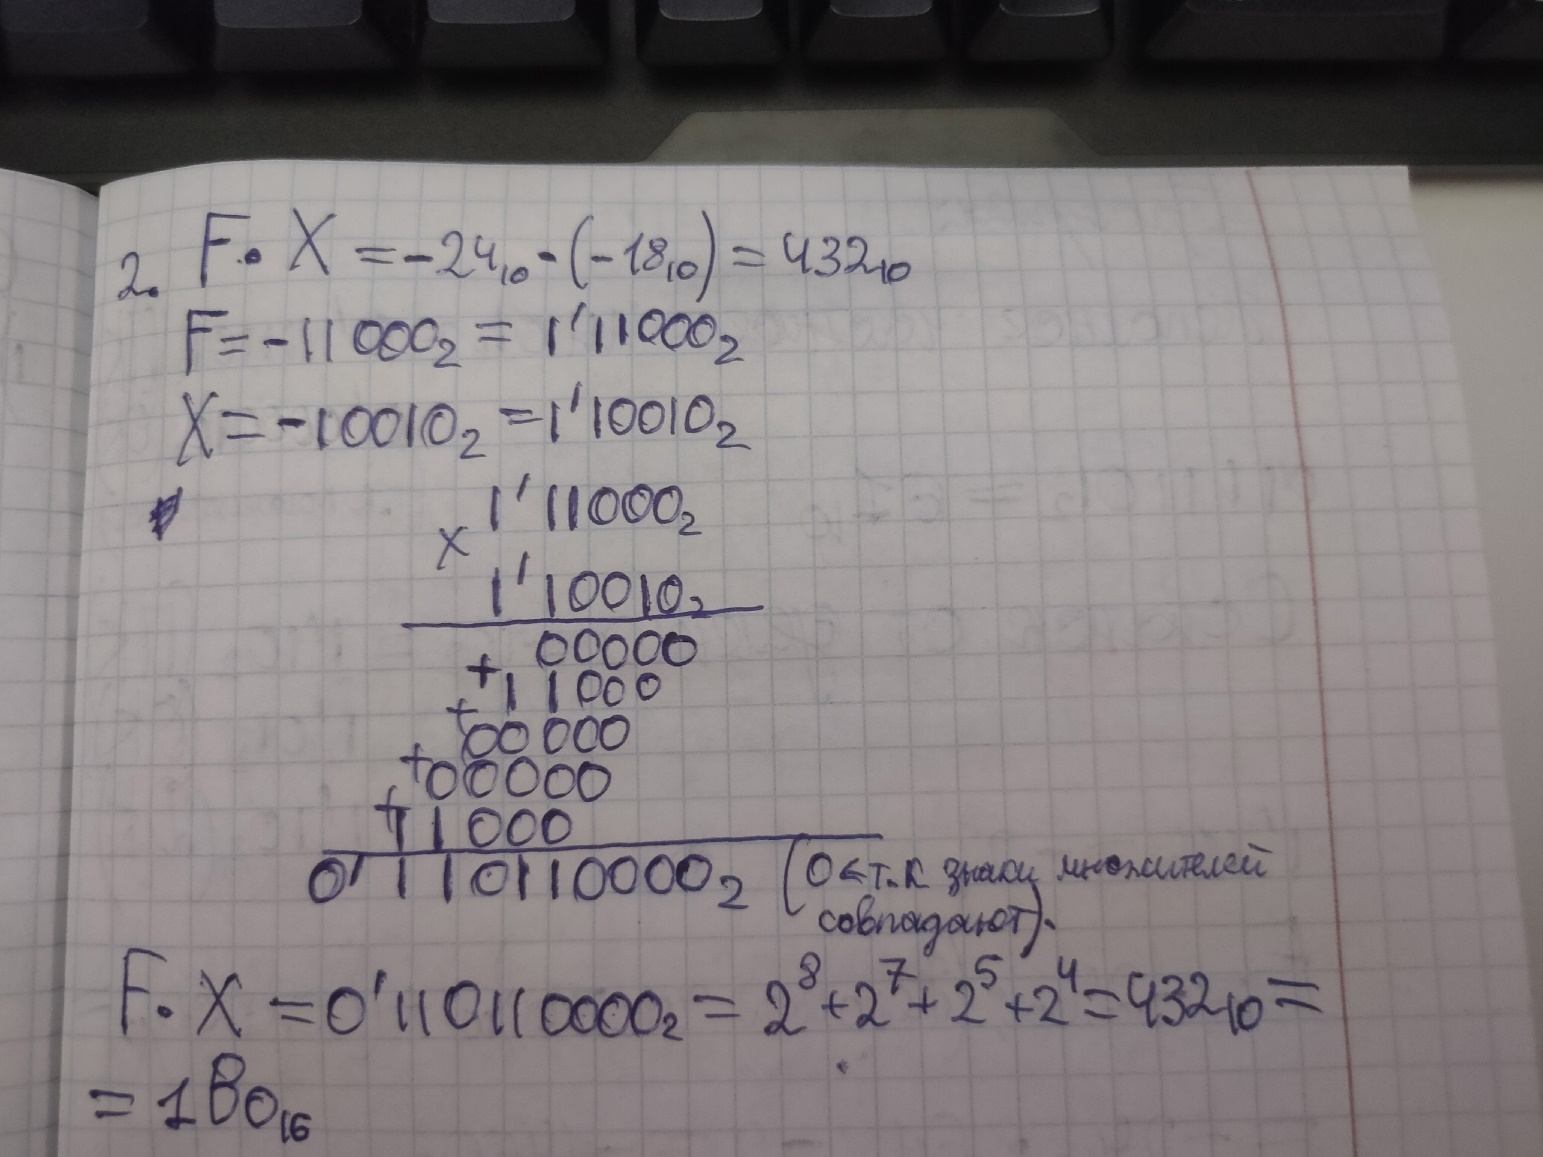 2. F·X=-24₁₀·(-18₁₀)=432₁₀
F=-11000₂=1'11000₂
X=-10010₂=1'10010₂
1'11000₂
×
1'10010₂
00000
+11000
+00000
+00000
+11000
0'110110000₂ (0 ← т.к знаки множителей
совпадают).
F·X=0'110110000₂=2⁸+2⁷+2⁵+2⁴=432₁₀=
=1B0₁₆